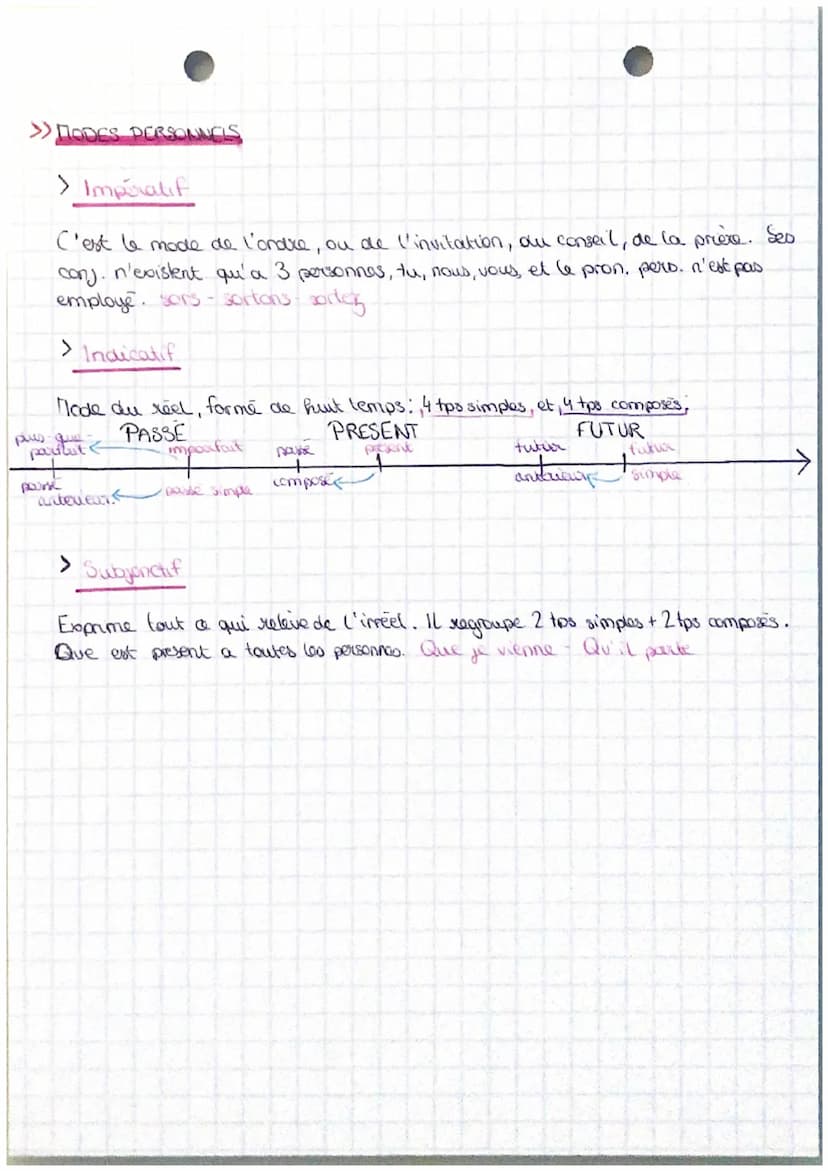 >> MODES PERSONNELS
> Impératif
C'est le mode de l'ordre, ou de l'invitation, du conseil, de la prière. Ses
conj. n'existent qu'a 3 personnes, tu, nous, vous, et le pron. pers. n'est pas
employé. sors - sortons - sortez
> Indicatif
Mode du réel, formé de huit temps : 4 tps simples, et 4 tps composés.
PASSÉ PRESENT FUTUR
plus-que-
parfait imparfait passé présent futur futur
passé
antérieur passé simple composé antérieur simple
> Subjonctif
Exprime tout ce qui relève de l'irréel. Il regroupe 2 tps simples + 2 tps composés.
Que est present a toutes les personnes. Que je vienne - Qu'il parte